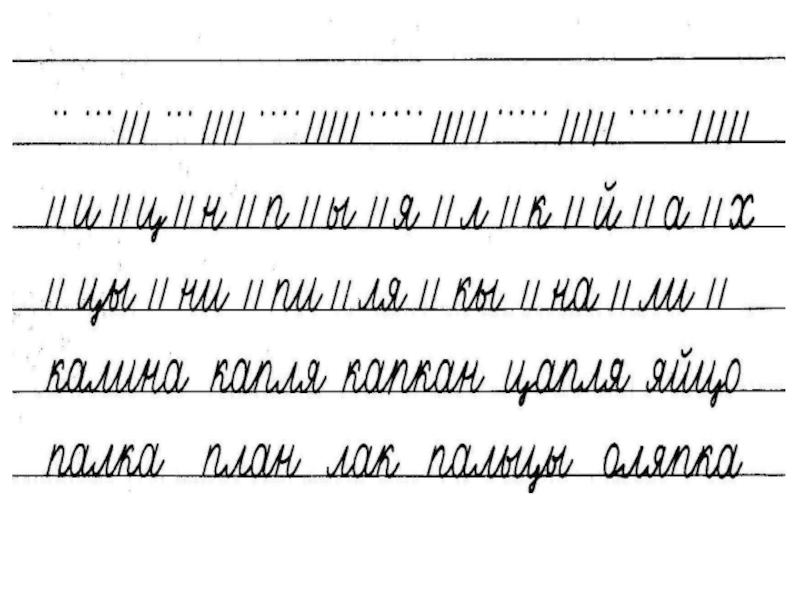 и ц н п ы я л к й а х
цы ни пи ля кы на ли
калина капля капкан цапля яйцо
палка план лак пальцы оляпка